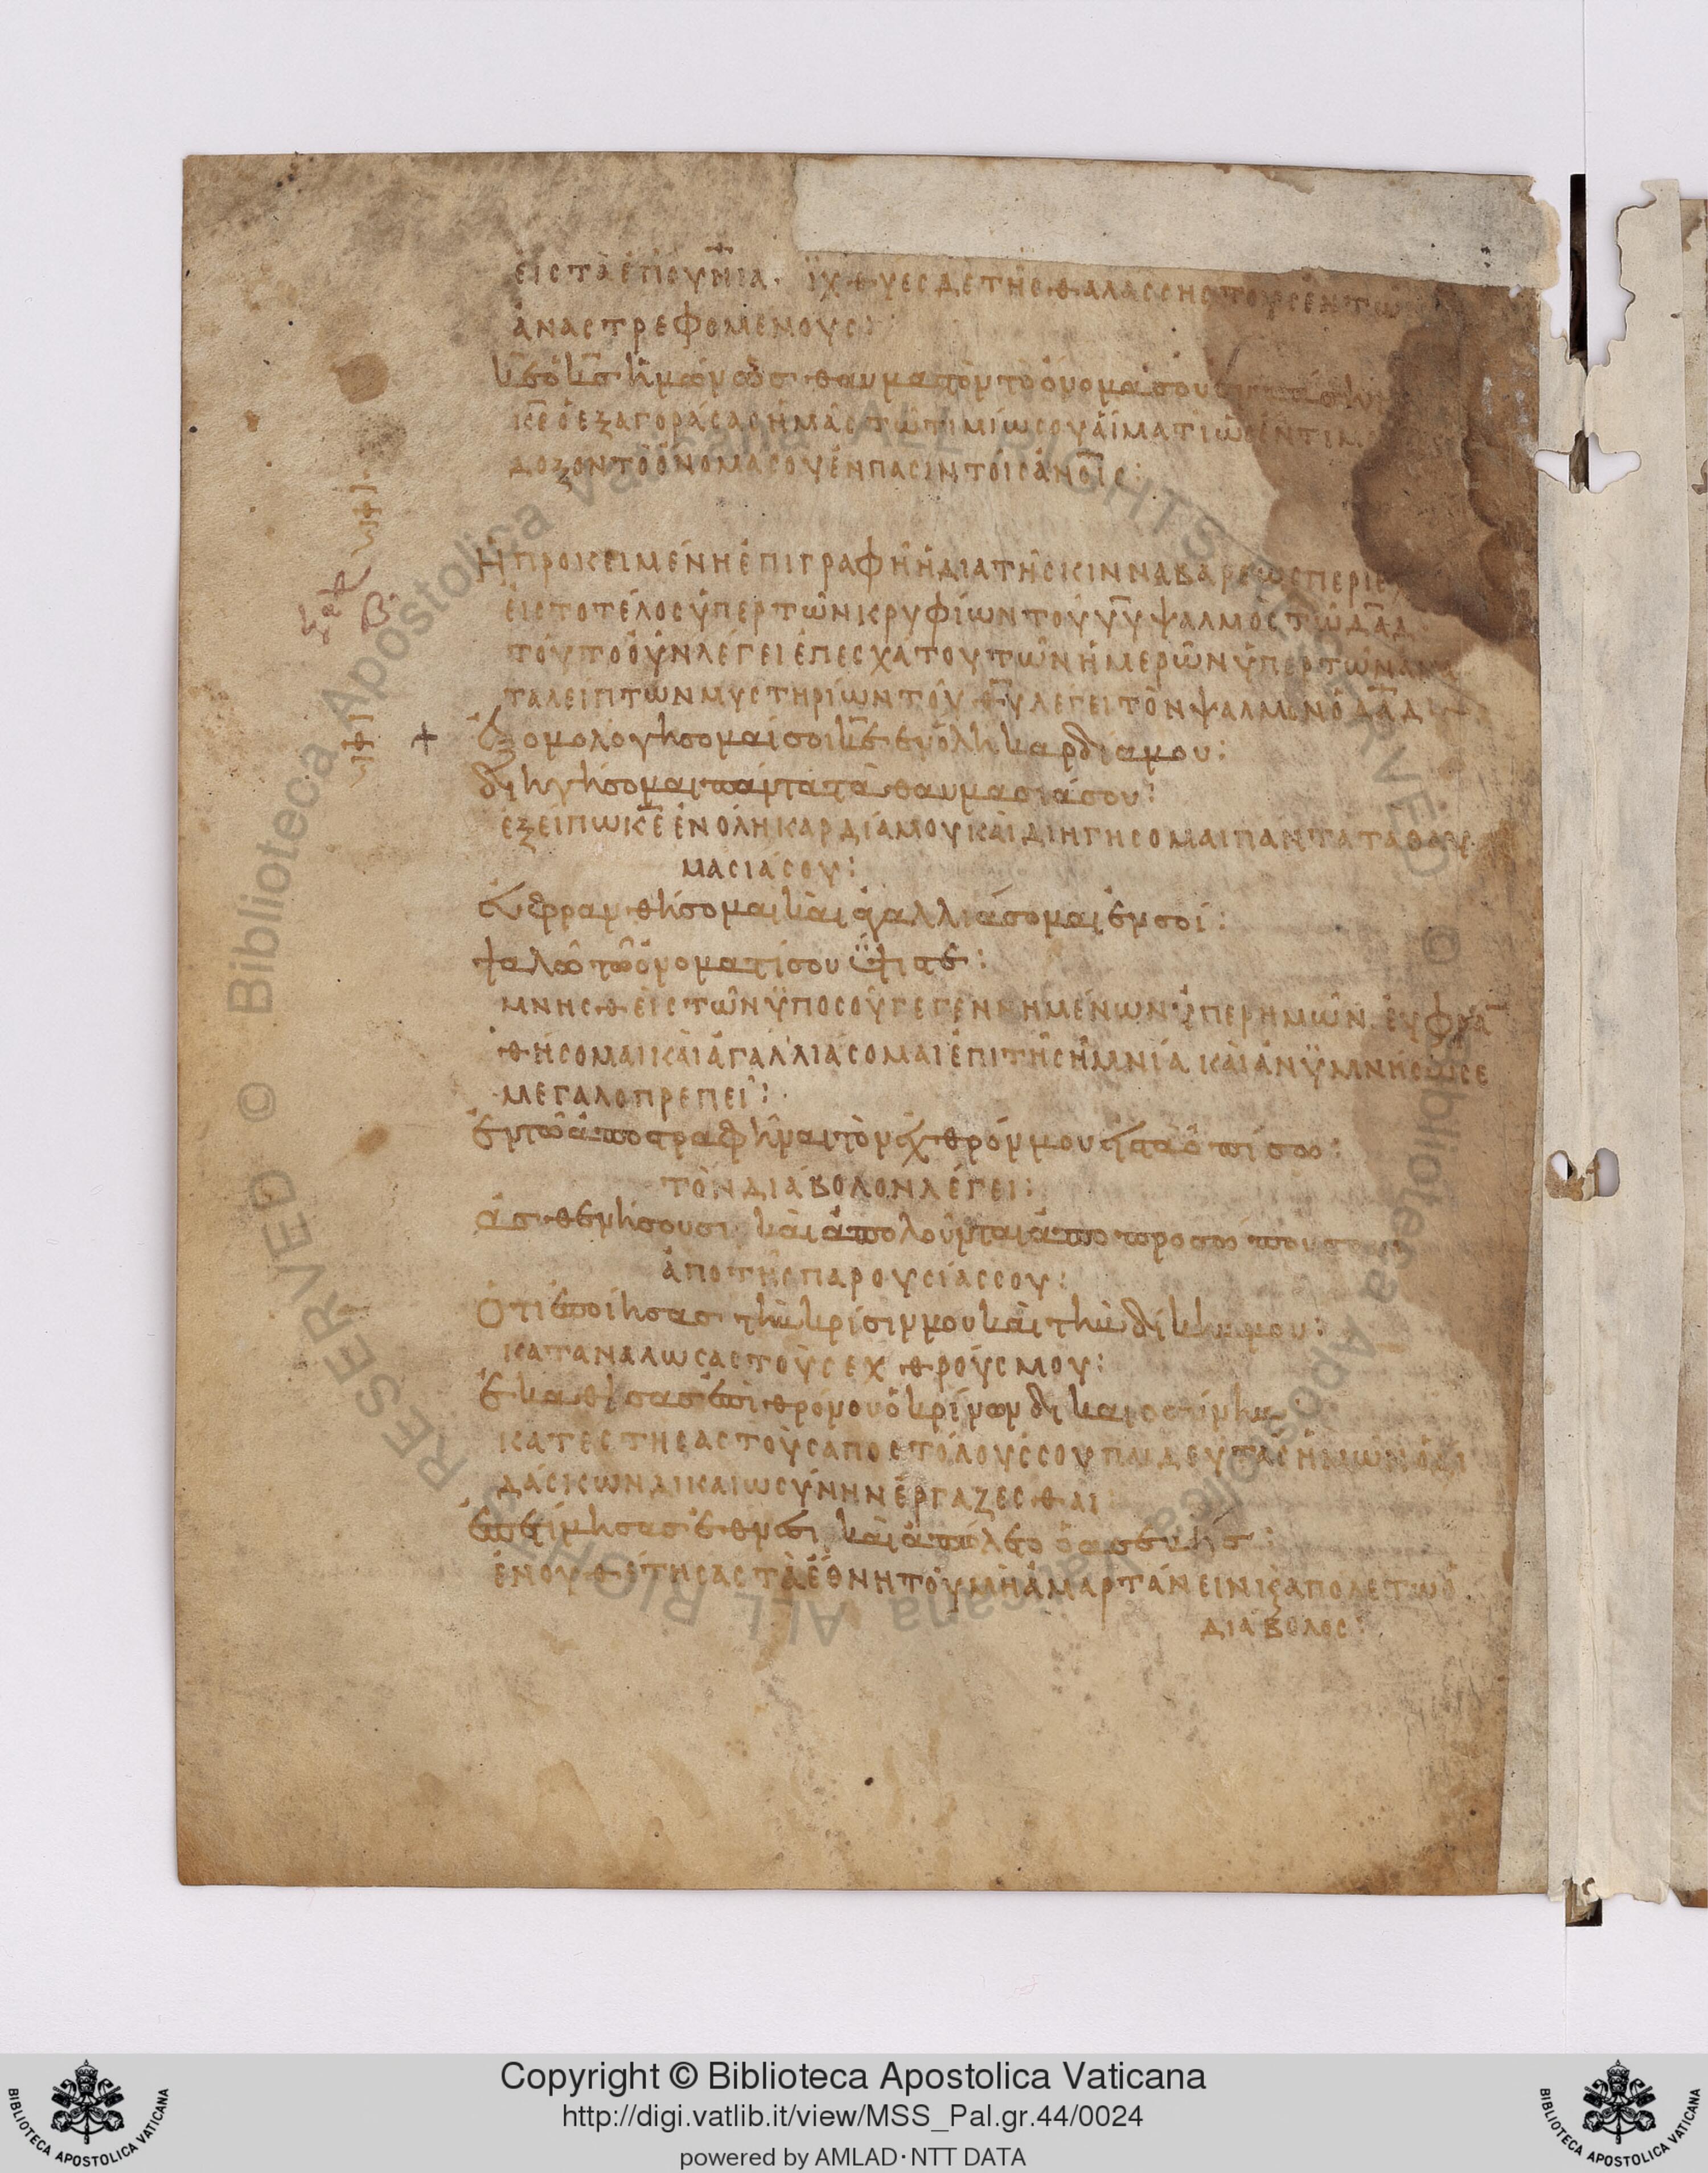 ἐις τὰ ἐπουνῖα· ἰχθυες δὲ τῆς θαλάσσης τοὺς ἐν τω
ἀναστρεφομένους:
κ̅ε̅ ὁ κ̅ς̅ ἡμῶν ὡς θαυμαστὸν τὸ ὄνομά σου
κ̅ε̅ ὁ ἐξαγοράσας ἡμᾶς τῶ τιμίω σου αἵματι ὡς
δοξον τὸ ὄνομα σου ἐν πασιν τοῖς ἀν̅ο̅ι̅ς:
Ἡ προκειμένη ἐπιγραφὴ ἡ δια τῆς κινναβάρεως περιε
ἐις το τέλος ὑπερ τῶν κρυφίων τοῦ υ̅υ̅ ψαλμος τῶ δ̅α̅δ̅
τοῦτο οὖν λέγει ἐπ εσχατου τῶν ἡμερῶν ὑπερ τῶν ἀκα
ταλειπτων μυστηρίων τοῦ θ̅υ̅ λεγει τὸν ψαλμον ὁ δ̅α̅δ̅
Ἐξομολογήσομαί σοι κ̅ε̅ ἐν ὅλη καρδία μου:
διηγήσομαι πάντα τὰ θαυμασιά σου:
ἐξείπω κ̅ε̅ ἐν ὅλη καρδία μου καὶ διηγησομαι παντα τα θαυ
μασιά σου:
ἐυφρανθήσομαι καὶ ἀγαλλιάσομαι ἐν σοί:
ψαλῶ τῶ ὀνόματί σου ὕψιστε:
μνησθεὶς τῶν ὑπο σοῦ γεγεννημένων ὑπερ ημῶν. ἐυφρα̅
θήσομαι καὶ ἀγαλλιάσομαι ἐπι τῆ σῆ μνία καὶ ἀνυμνήσω σε
μεγαλοπρεπεῖ:
Ἐν τῶ ἀποστραφῆναι τὸν ἐχθρόν μου εἰς τὰ ὀπίσω:
τὸν διάβολον λέγει:
ἀσθενήσουσι καὶ ἀπολοῦνται ἀπο προσώπου σου
ἀπο τῆς παρουσίας σου:
Ὅτι ἐποίησας τὴν κρίσιν μου καὶ τὴν δίκην μου:
καταναλωσας τοὺς εχθρούς μου:
Ἐκαθισας ἐπὶ θρόνου ὁ κρίνων δικαιοσύνην:
κατεστησας τοὺς ἀποστόλους σου παιδευτὰς ἡμῶν ὁ δι
δάσκων δικαιωσύνην ἐργαζεσθαι
ἐπετίμησας ἔθνεσι καὶ ἀπώλετο ὁ ἀσεβής:
ἐνουθέτησας τὰ ἔθνη τοῦ μὴ ἁμαρτάνειν κ̀ απολετω ὁ
διάβολος:
Copyright © Biblioteca Apostolica Vaticana
http://digi.vatlib.it/view/MSS_Pal.gr.44/0024
powered by AMLAD·NTT DATA
BIBLIOTECA APOSTOLICA VATICANA
BIBLIOTECA APOSTOLICA VATICANA
© Biblioteca Apostolica Vaticana ALL RIGHTS RESERVED
© Biblioteca Apostolica Vaticana ALL RIGHTS RESERVED